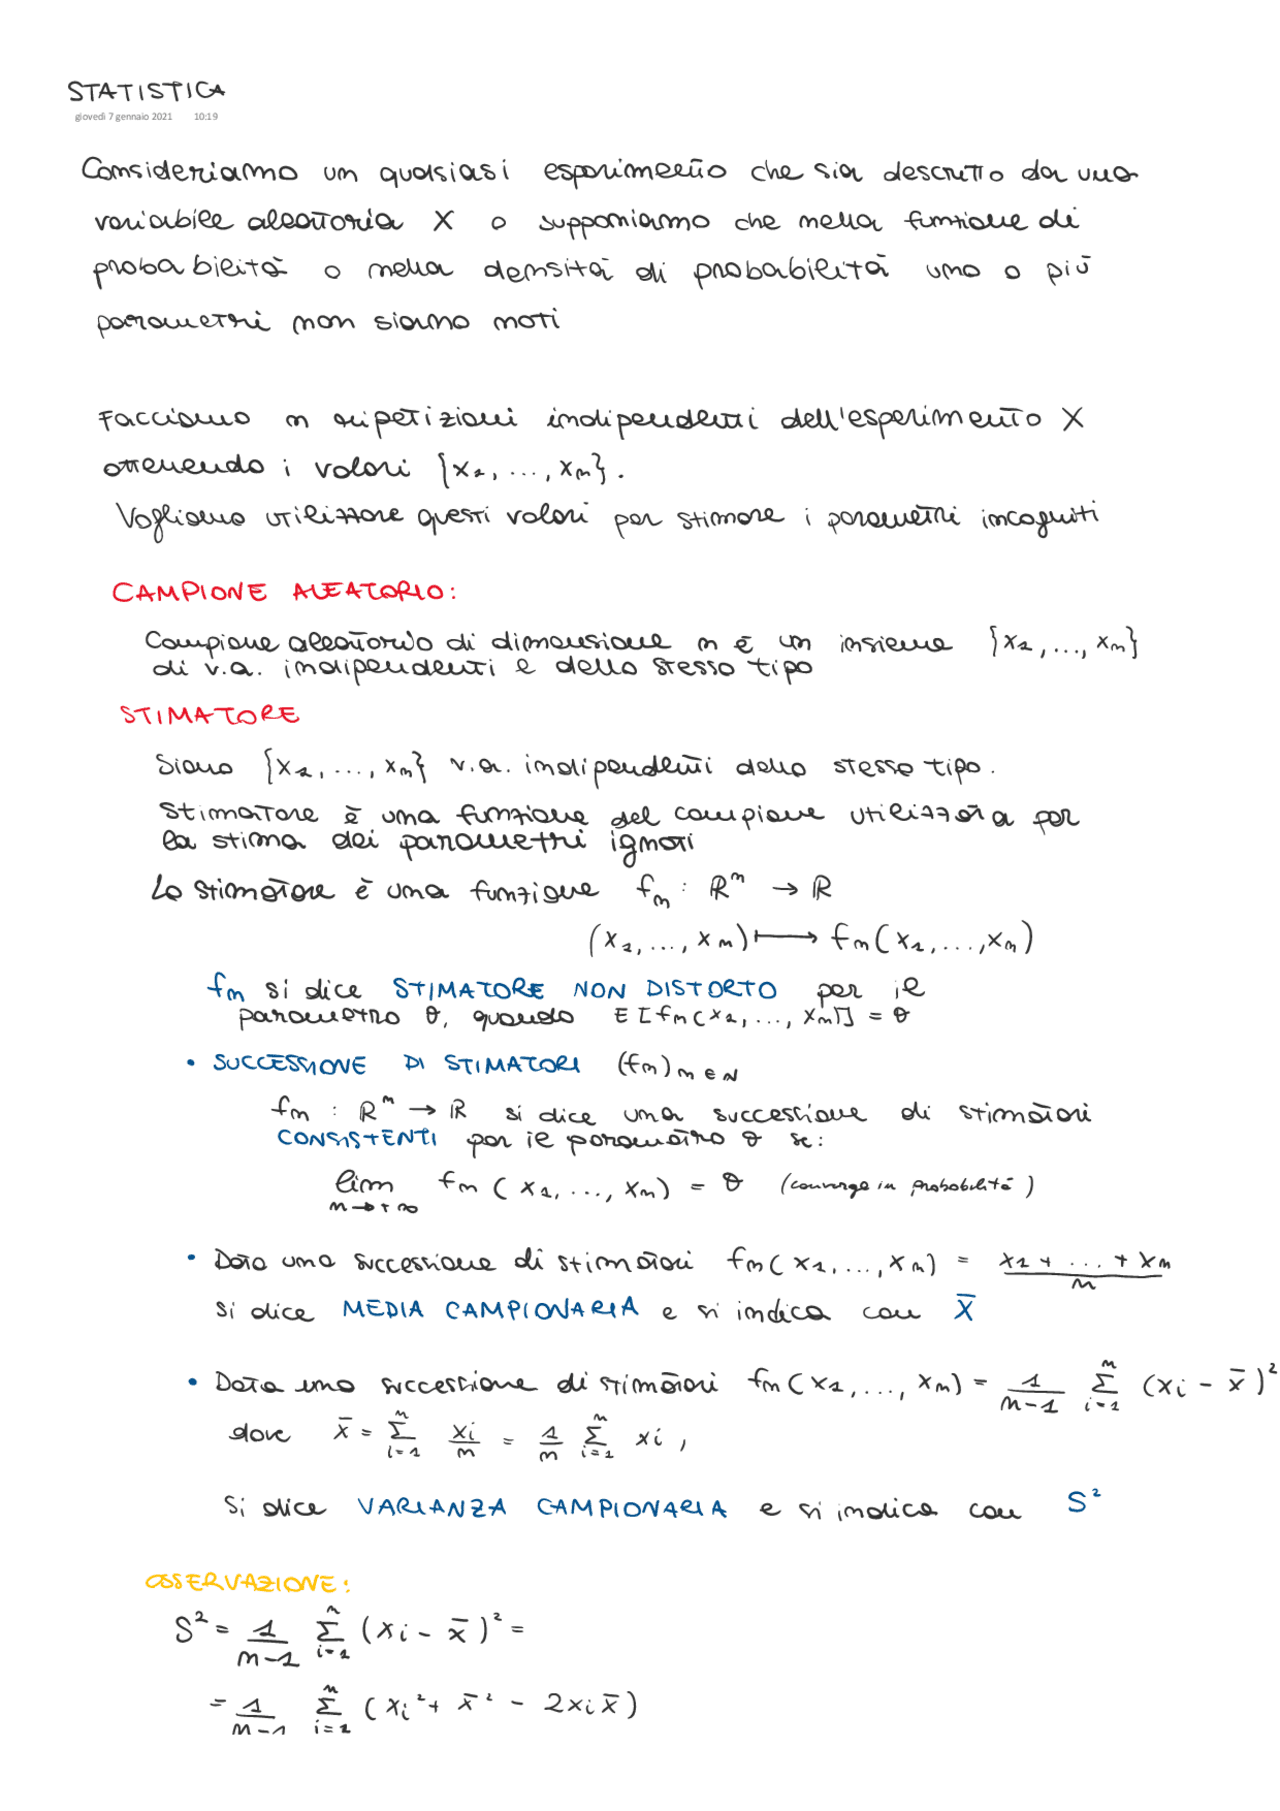 STATISTICA
giovedì 7 gennaio 2021 10:19
Consideriamo un qualsiasi esperimento che sia descritto da una
variabile aleatoria X e supponiamo che nella funzione di
probabilità o nella densità di probabilità uno o più
parametri non siano noti
Facciamo n ripetizioni indipendenti dell'esperimento X
ottenendo i valori {x₁, ..., xₙ}.
Vogliamo utilizzare questi valori per stimare i parametri incogniti
CAMPIONE ALEATORIO:
Campione aleatorio di dimensione n è un insieme {x₁, ..., xₙ}
di v.a. indipendenti e dello stesso tipo
STIMATORE
Siano {x₁, ..., xₙ} v.a. indipendenti dello stesso tipo.
Stimatore è una funzione del campione utilizzata per
la stima dei parametri ignoti
Lo stimatore è una funzione fₙ : ℝⁿ → ℝ
(x₁, ..., xₙ) ⟼ fₙ(x₁, ..., xₙ)
fₙ si dice STIMATORE NON DISTORTO per il
parametro θ, quando E[fₙ(x₁, ..., xₙ)] = θ
• SUCCESSIONE DI STIMATORI (fₙ)ₙ ∈ ℕ
fₙ : ℝⁿ → ℝ si dice una successione di stimatori
CONSISTENTI per il parametro θ se:
lim fₙ(x₁, ..., xₙ) = θ (converge in probabilità)
n→+∞
• Data una successione di stimatori fₙ(x₁, ..., xₙ) = (x₁ + ... + xₙ)/n
si dice MEDIA CAMPIONARIA e si indica con X̄
• Data una successione di stimatori fₙ(x₁, ..., xₙ) = 1/(n-1) Σᵢ₌₁ⁿ (xᵢ - x̄)²
dove x̄ = Σᵢ₌₁ⁿ xᵢ/n = 1/n Σᵢ₌₁ⁿ xᵢ,
Si dice VARIANZA CAMPIONARIA e si indica con S²
OSSERVAZIONE:
S² = 1/(n-1) Σᵢ₌₁ⁿ (xᵢ - x̄)² =
= 1/(n-1) Σᵢ₌₁ⁿ (xᵢ² + x̄² - 2xᵢx̄)